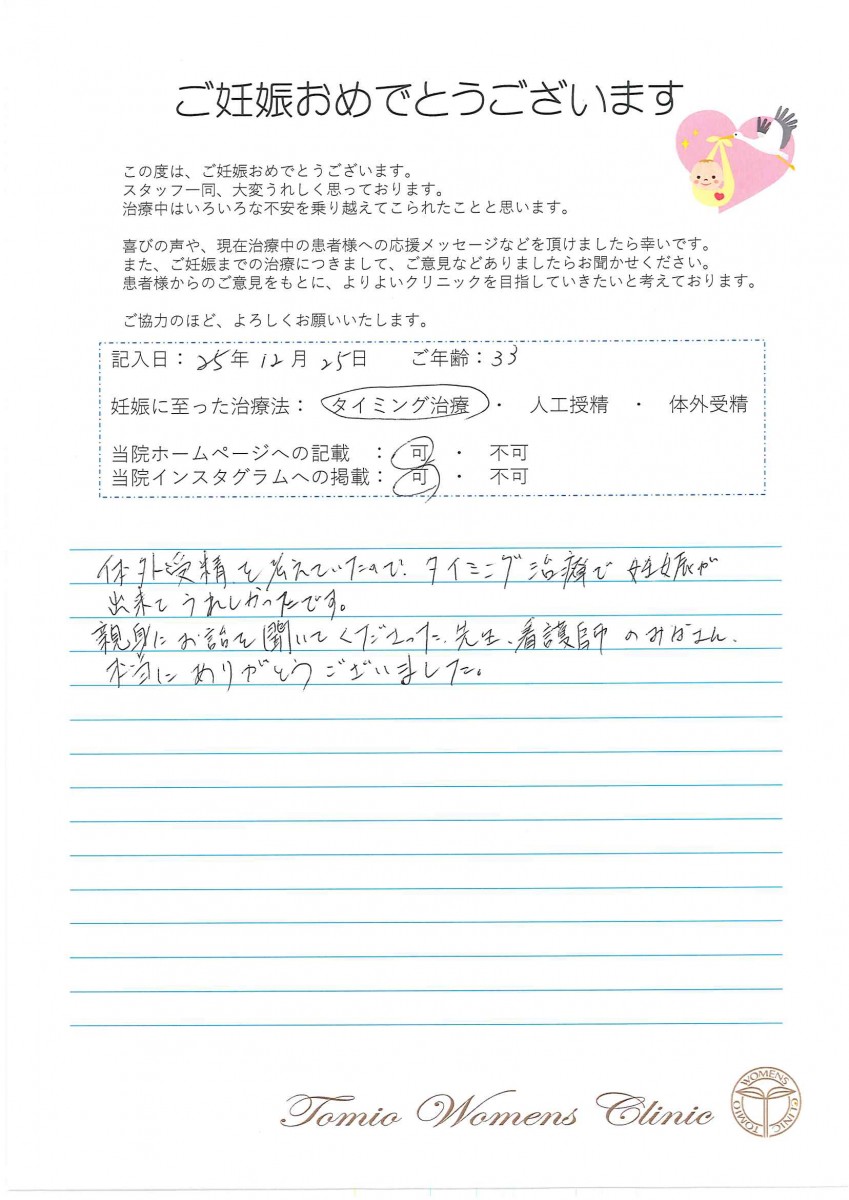 ご妊娠おめでとうございます
この度は、ご妊娠おめでとうございます。
スタッフ一同、大変うれしく思っております。
治療中はいろいろな不安を乗り越えてこられたことと思います。
喜びの声や、現在治療中の患者様への応援メッセージなどを頂けましたら幸いです。
また、ご妊娠までの治療につきまして、ご意見などありましたらお聞かせください。
患者様からのご意見をもとに、よりよいクリニックを目指していきたいと考えております。
ご協力のほど、よろしくお願いいたします。
記入日：25年 12月 25日 ご年齢：33
妊娠に至った治療法： タイミング治療 ・ 人工授精 ・ 体外受精
当院ホームページへの記載 ： 可 ・ 不可
当院インスタグラムへの掲載： 可 ・ 不可
体外受精を考えていたので、タイミング治療で妊娠が
出来てうれしかったです。
親身にお話を聞いてくださった、先生、看護師のみなさん、
本当にありがとうございました。
Tomio Womens Clinic
TOMIO WOMENS CLINIC